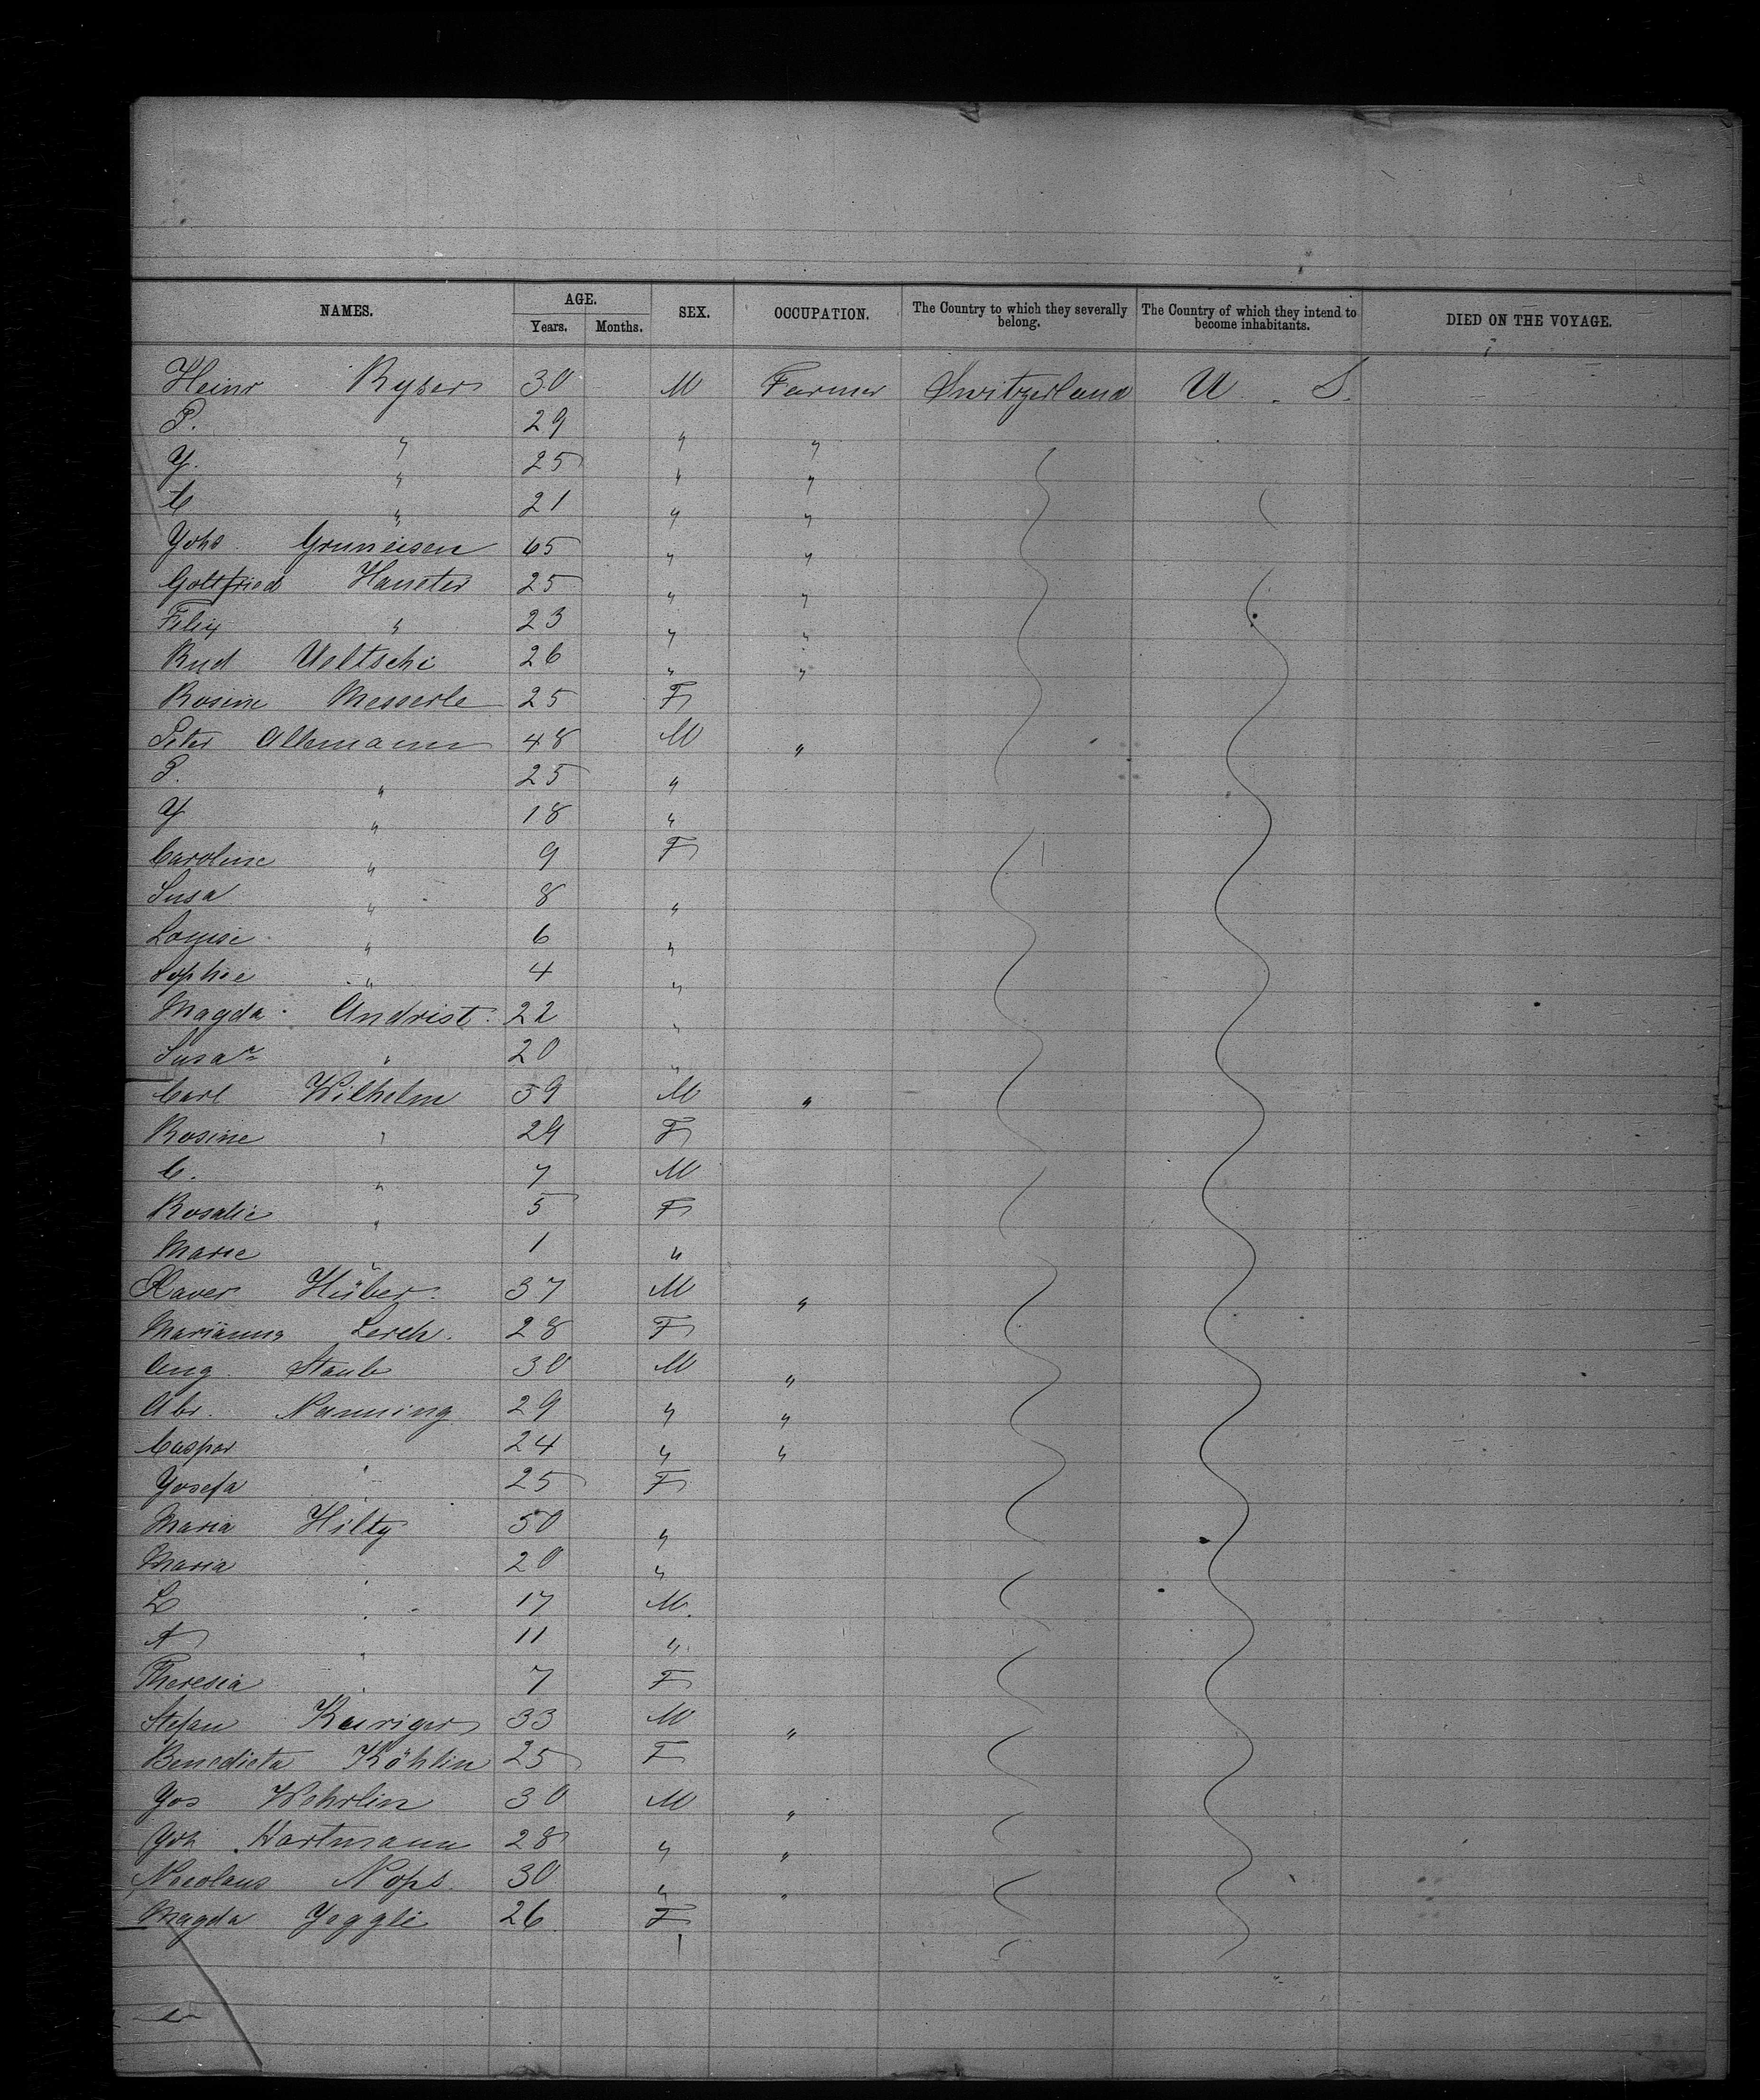 NAMES. AGE. SEX. OCCUPATION. The Country to which they severally belong. The Country of which they intend to become inhabitants. DIED ON THE VOYAGE.
Years. Months.
Heinr Ryser 30 M Farmer Switzerland U. S.
P. " 29 " "
Y. " 25 " "
C " 21 " "
Yohs Gruneisen 65 " "
Gottfried Haueter 25 " "
Felix " 23 " "
Rud Ueltschi 26 " "
Rosine Messerle 25 F
Peter Allemann 48 M "
P. " 25 "
Y " 18 "
Caroline " 9 F
Susa " 8 "
Louise " 6 "
Sophie " 4 "
Magda Andrist 22 "
Susa " 20 "
Carl Wilhelm 39 M "
Rosine " 29 F
C. " 7 M
Rosalie " 5 F
Marie " 1 "
Xaver Hüber 37 M "
Marianna Lerch. 28 F
Aug. Staub 30 M "
Abr. Nanning 29 " "
Caspar " 24 " "
Yosefa " 25 F
Maria Hilty 50 "
Maria " 20 "
L " 17 M.
A " 11 "
Theresia " 7 F
Stefan Kuriger 33 M "
Benedicta Köhlin 25 F
Yos Wehrlin 30 M "
Yoh Hartmann 28 " "
Nicolaus Nops 30 " "
Magda Yeggli 26 F